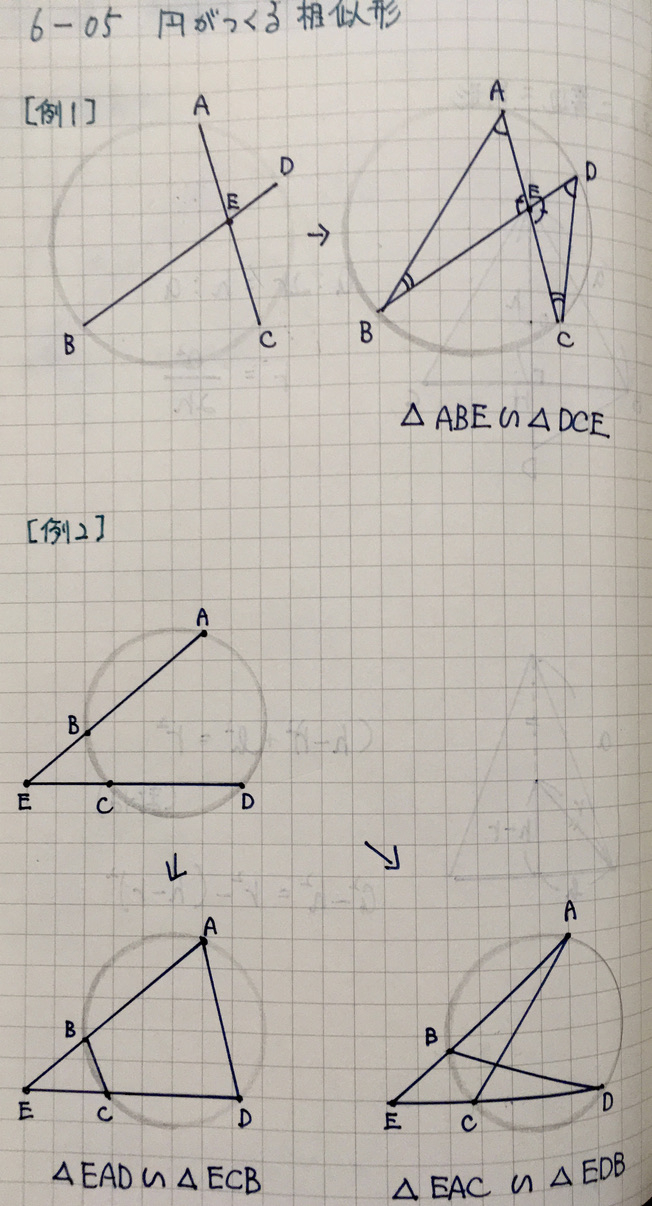 6-05 円がつくる相似形
[例1]
A
D
E
B
C
→
A
D
E
B
C
△ABE∽△DCE
[例2]
A
B
E
C
D
↓
↘
A
B
E
C
D
△EAD∽△ECB
A
B
E
C
D
△EAC∽△EDB